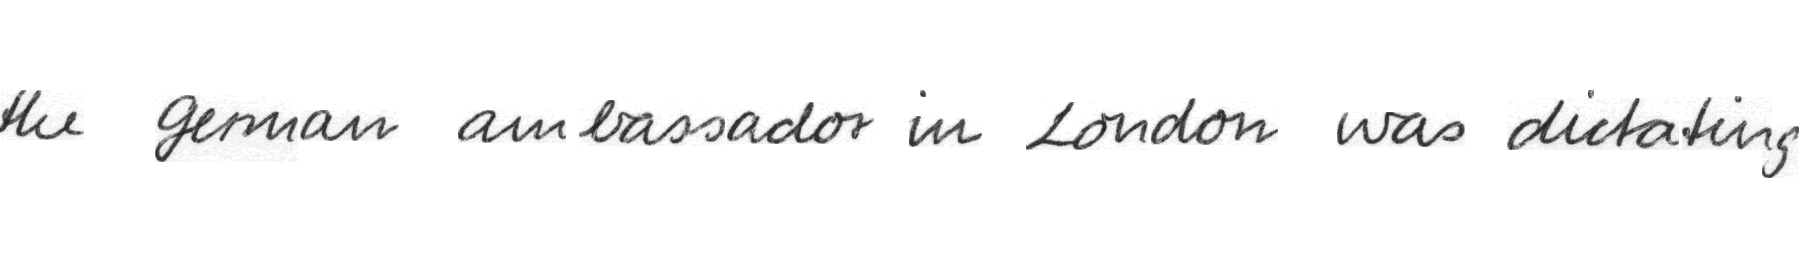 the German ambassador in London was dictating